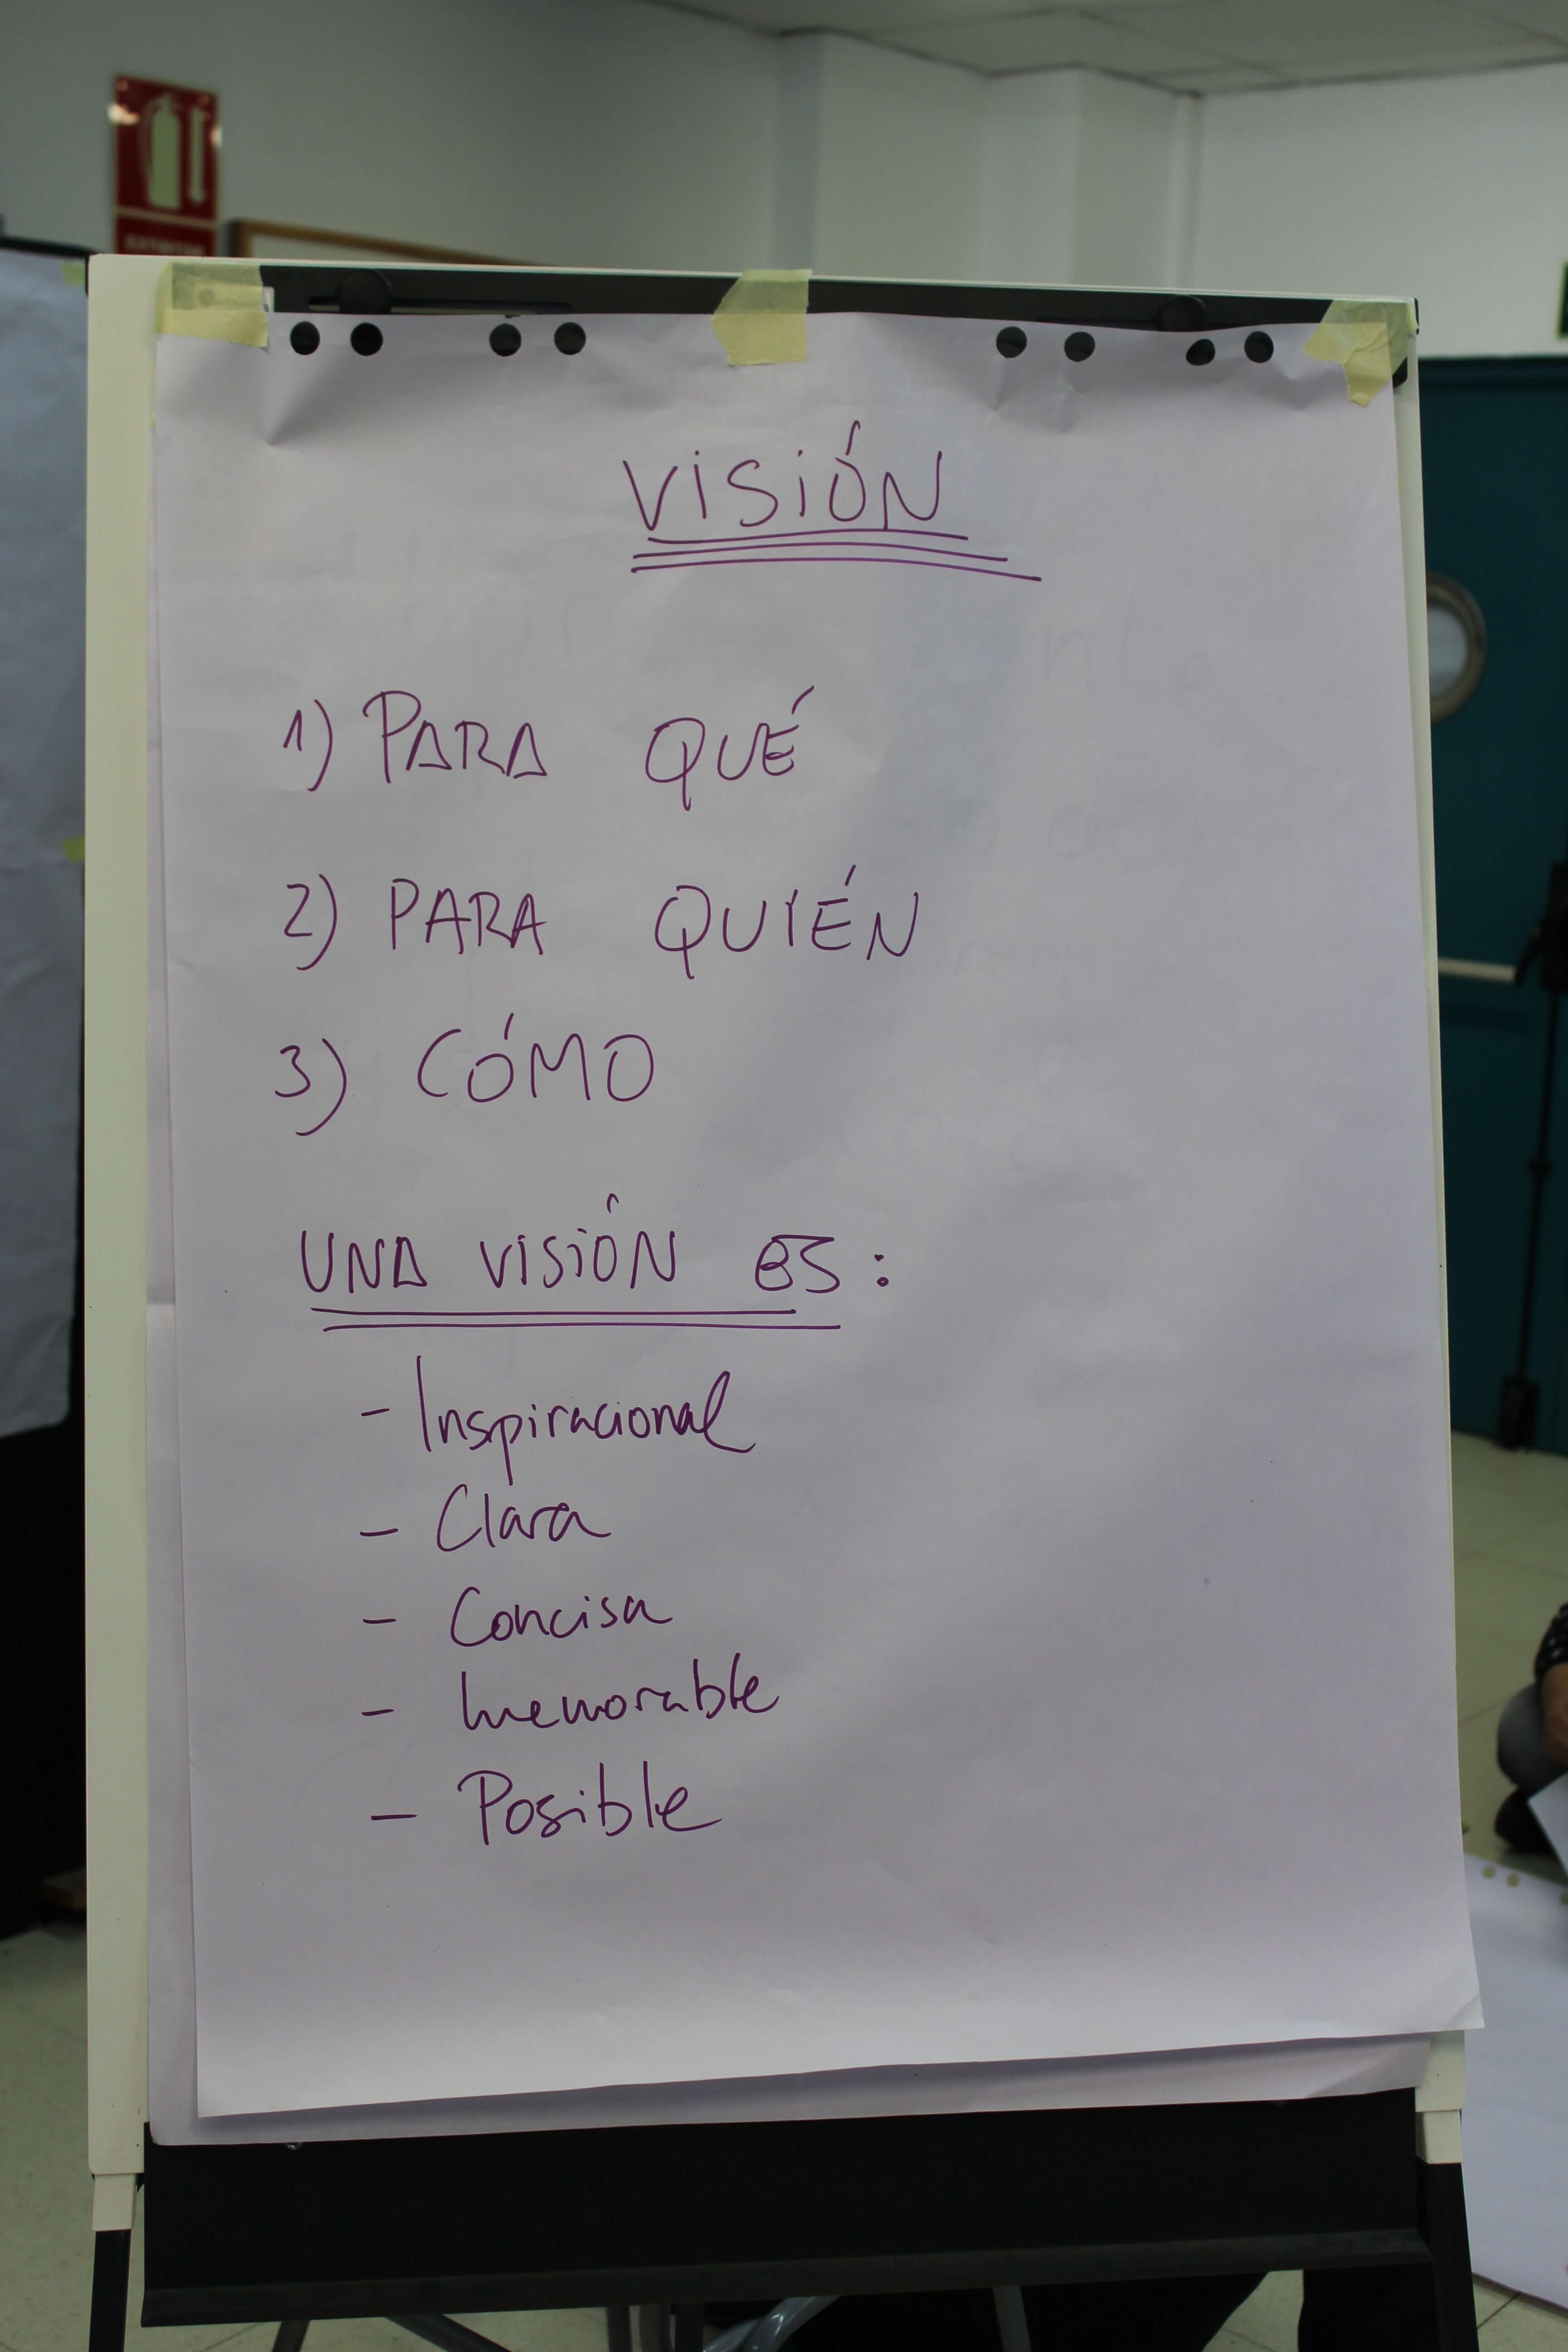 EXTINTOR
VISIÓN
1) PARA QUÉ
2) PARA QUIÉN
3) CÓMO
UNA VISIÓN ES:
- Inspiracional
- Clara
- Concisa
- Memorable
- Posible